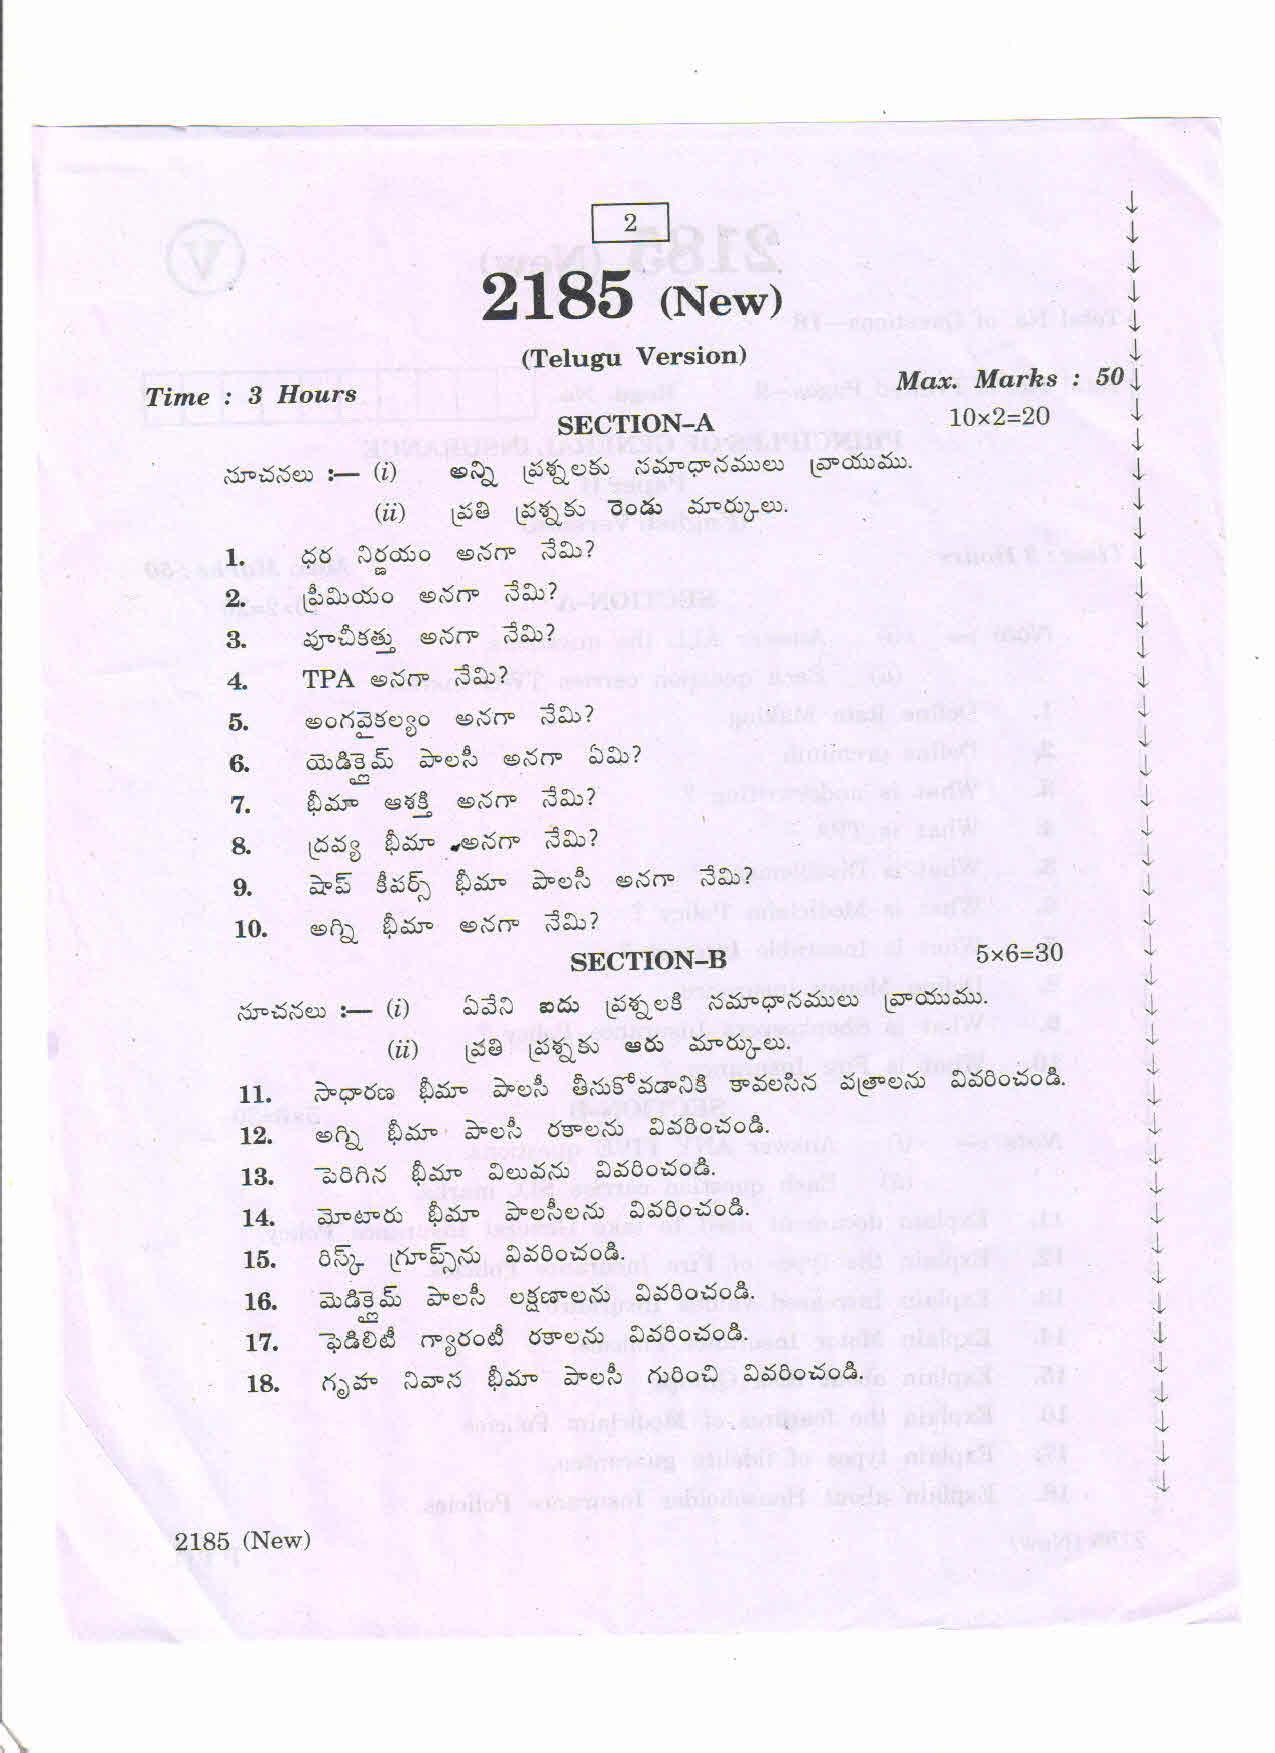 2
2185 (New)
(Telugu Version)
Time : 3 Hours Max. Marks : 50
SECTION–A 10×2=20
సూచనలు :— (i) అన్ని ప్రశ్నలకు సమాధానములు వ్రాయుము.
(ii) ప్రతి ప్రశ్నకు రెండు మార్కులు.
1. ధర నిర్ణయం అనగా నేమి?
2. ప్రీమియం అనగా నేమి?
3. పూచీకత్తు అనగా నేమి?
4. TPA అనగా నేమి?
5. అంగవైకల్యం అనగా నేమి?
6. యెడిక్లైమ్ పాలసీ అనగా ఏమి?
7. భీమా ఆశక్తి అనగా నేమి?
8. ద్రవ్య భీమా అనగా నేమి?
9. షాప్ కీపర్స్ భీమా పాలసీ అనగా నేమి?
10. అగ్ని భీమా అనగా నేమి?
SECTION–B 5×6=30
సూచనలు :— (i) ఏవేని ఐదు ప్రశ్నలకి సమాధానములు వ్రాయుము.
(ii) ప్రతి ప్రశ్నకు ఆరు మార్కులు.
11. సాధారణ భీమా పాలసీ తీసుకోవడానికి కావలసిన పత్రాలను వివరించండి.
12. అగ్ని భీమా పాలసీ రకాలను వివరించండి.
13. పెరిగిన భీమా విలువను వివరించండి.
14. మోటారు భీమా పాలసీలను వివరించండి.
15. రిస్క్ గ్రూప్స్‌ను వివరించండి.
16. మెడిక్లైమ్ పాలసీ లక్షణాలను వివరించండి.
17. ఫెడిలిటీ గ్యారంటీ రకాలను వివరించండి.
18. గృహ నివాస భీమా పాలసీ గురించి వివరించండి.
2185 (New)